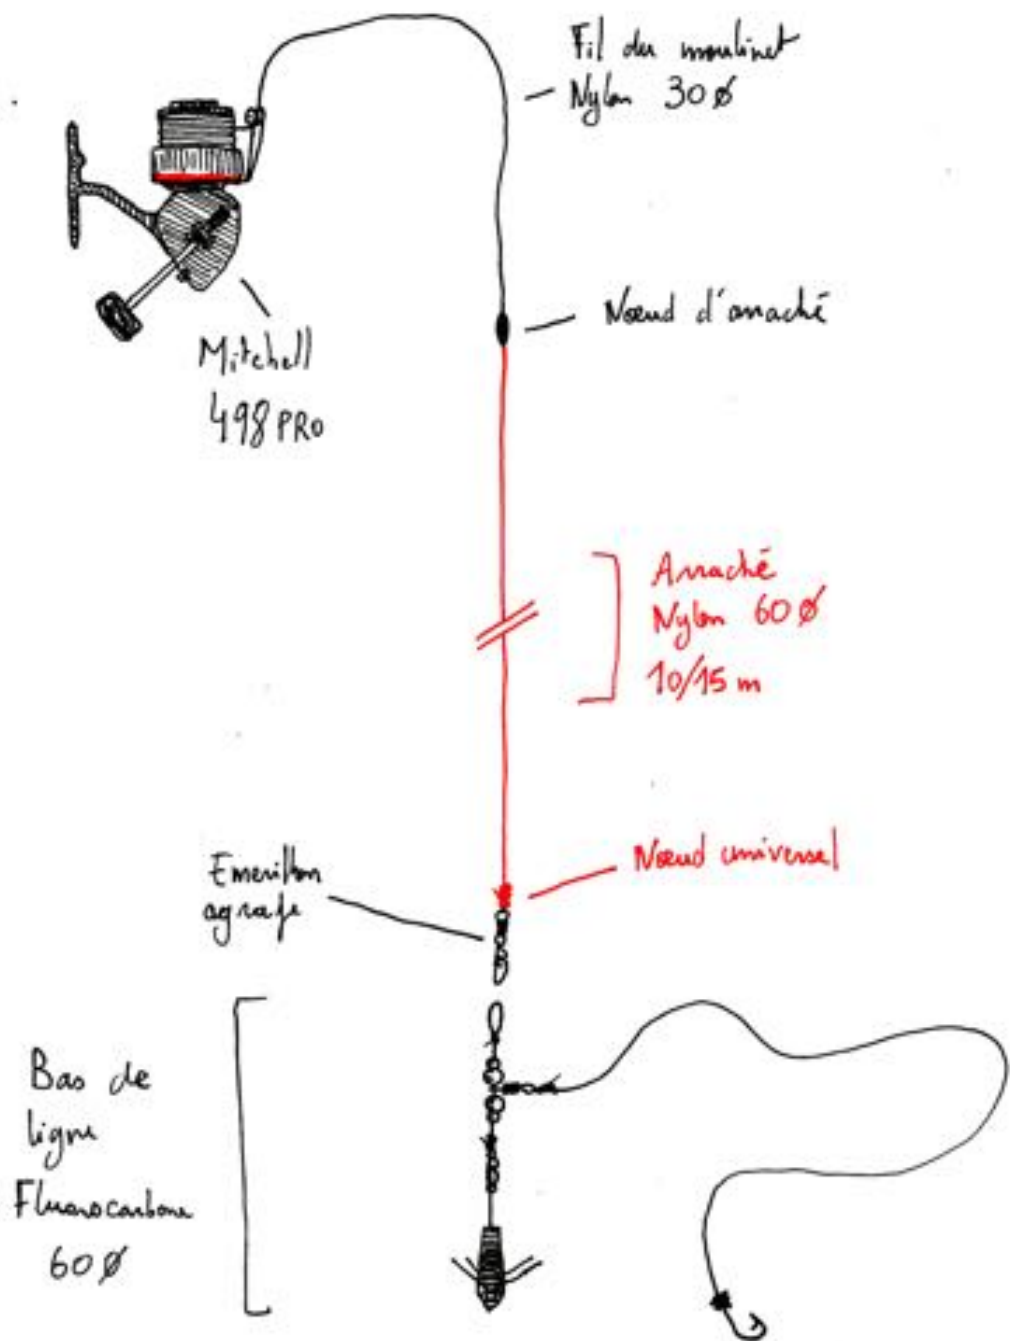 Fil du moulinet
Nylon 30 Ø
Nœud d'arraché
Mitchell
498 PRO
Arraché
Nylon 60 Ø
10/15 m
Nœud universel
Emerillon
agrafe
Bas de
ligne
Fluorocarbone
60 Ø